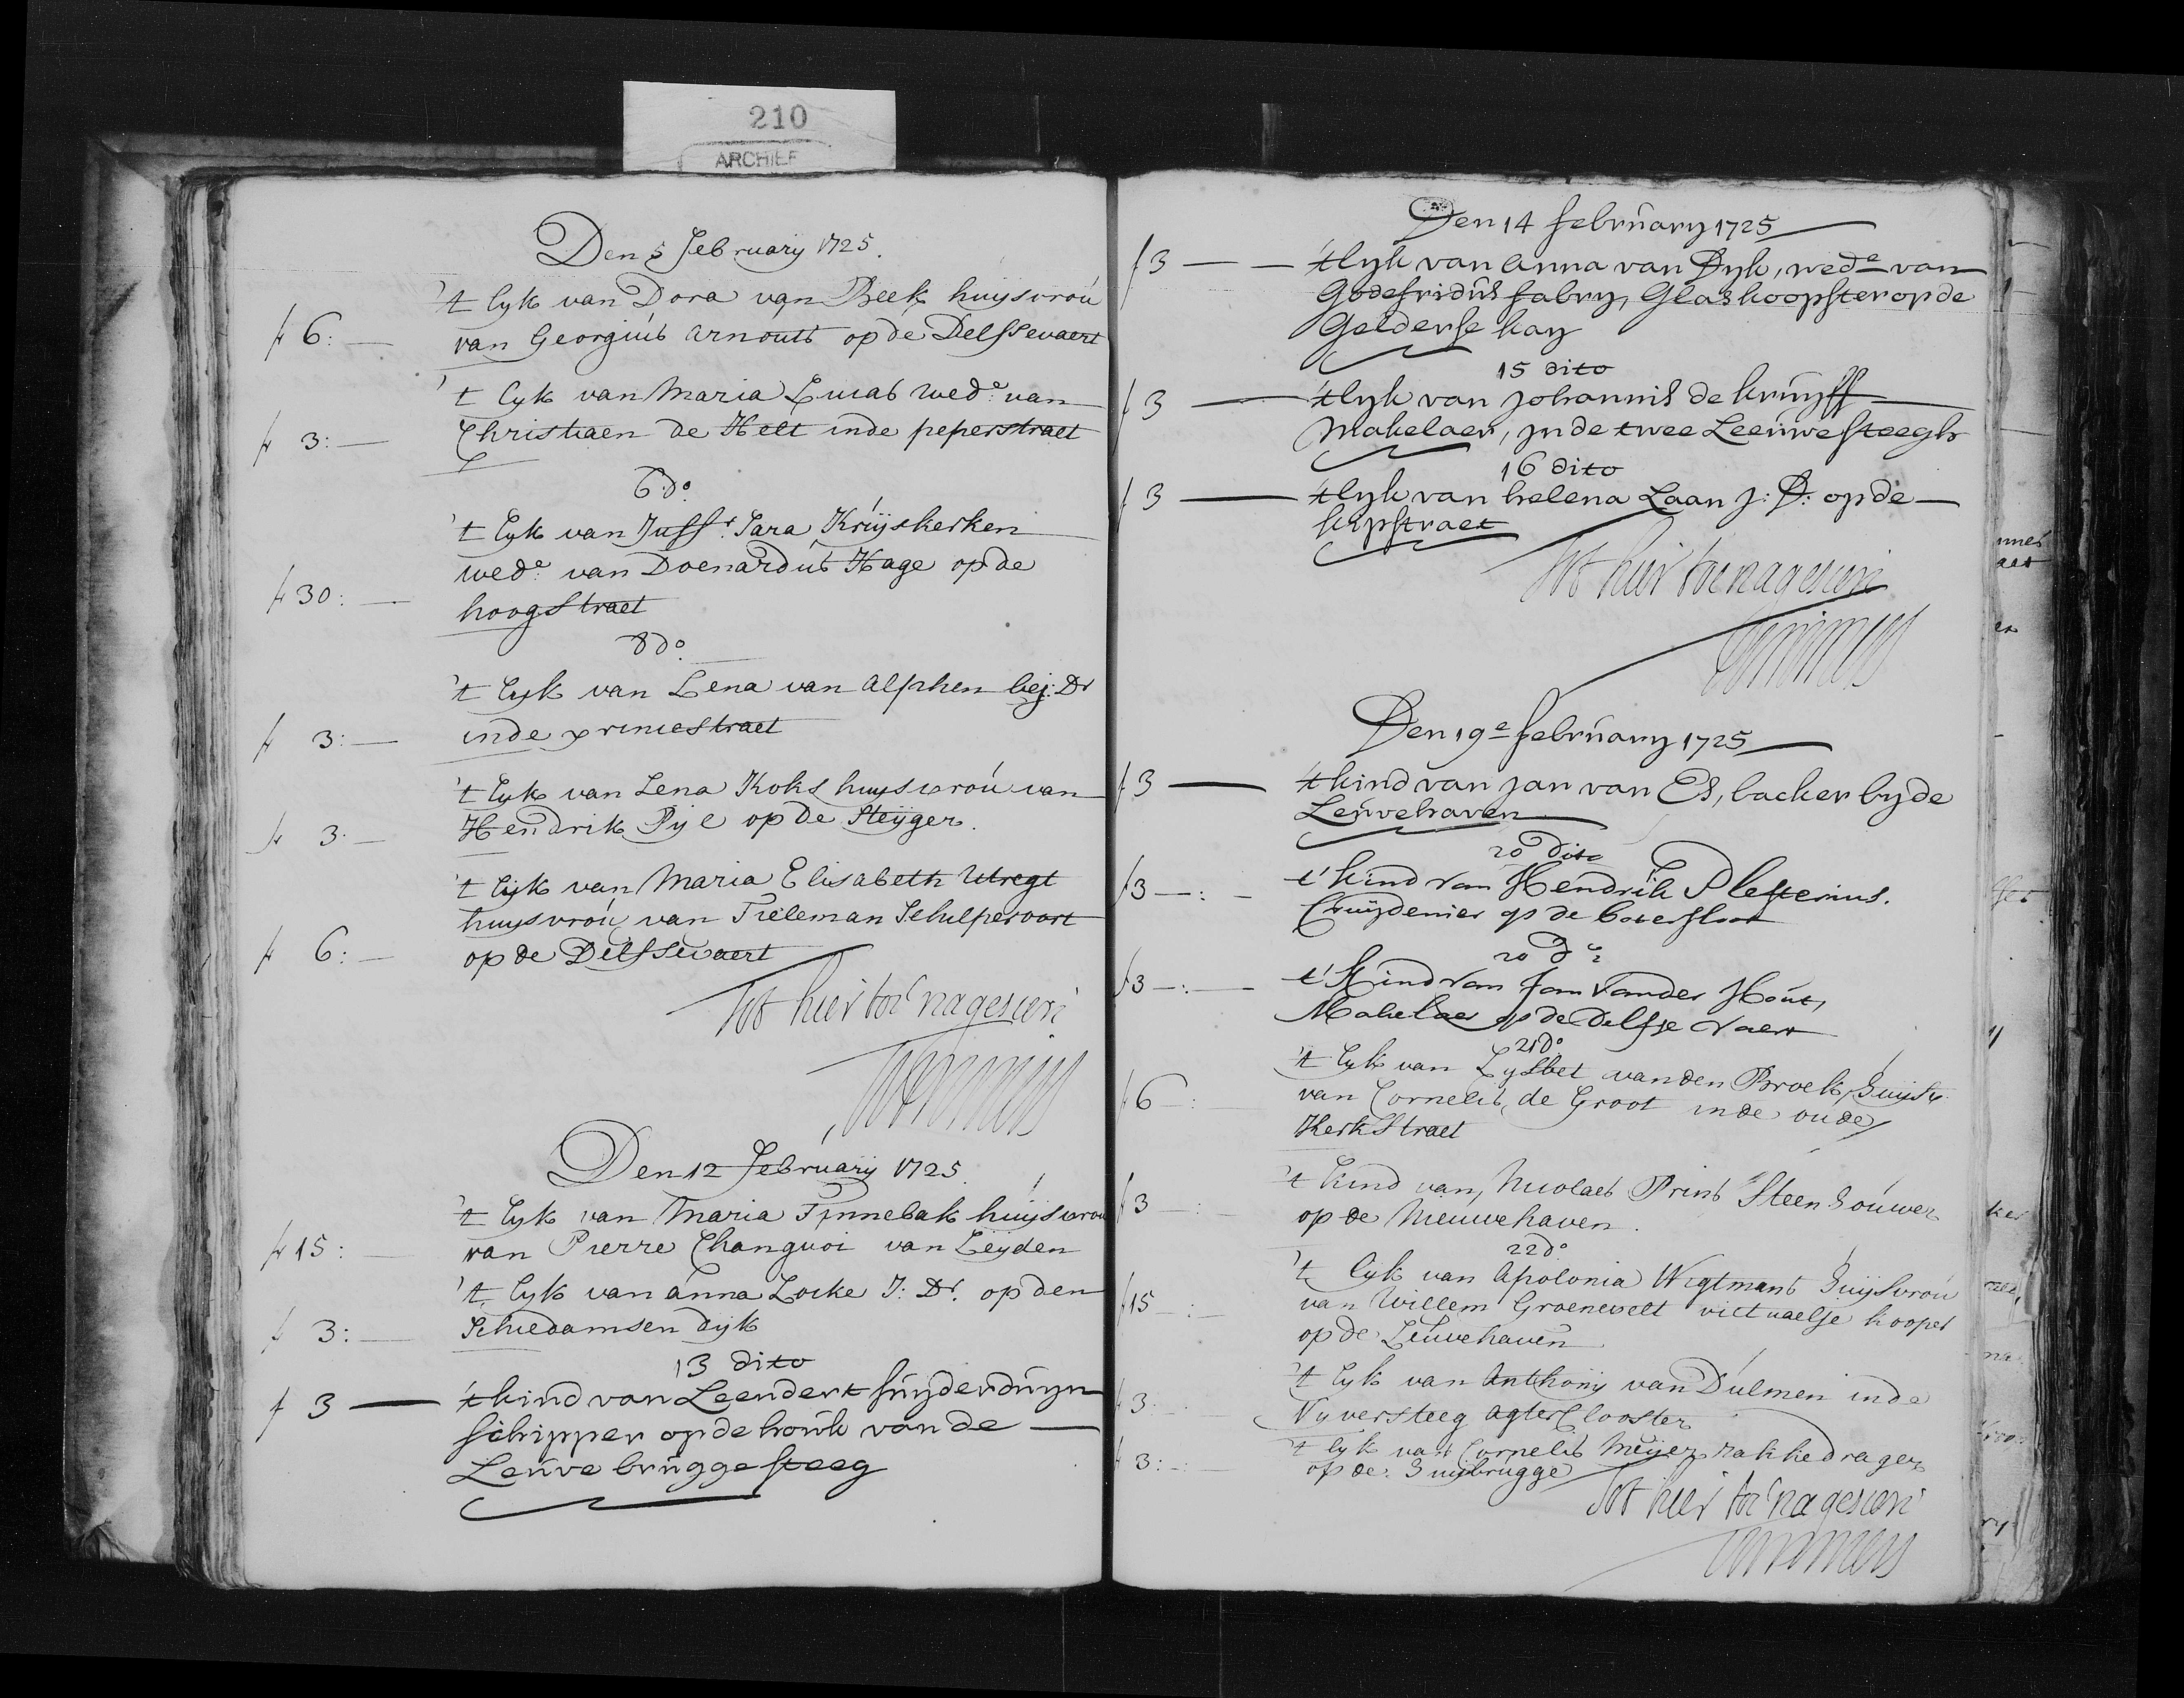 210
ARCHIEF
Den 5 February 1725.
't lyk van Dora van Beek huysvroú
f 6: — van Georgiús Arnouts op de Delfsevaert
't lyk van Maria Lucas wede. van
f 3: — Christiaen de Helt inde peperstraet
6 do.
't lyk van Juffr. Sara Krúyskerken
wede. van Doenardús Hage op de
f 30: — hoogstraet
8 do.
't lyk van Lena van Alphen bej: Dr
f 3: — inde princestraet
't lyk van Lena Koks huysvroú van
f 3: — Hendrik Pije op de Steyger.
't lyk van Maria Elisabeth Utregt
huysvroú van Tieleman Schulpervoort
f 6: — op de Delfsevaert
Tot hier toe nagesien
Den 12 February 1725.
't lyk van Maria Tinnebak húysvrou
f 15: — van Pierre Changuoi van Leyden
't lyk van anna Locke J: Dr. op den
f 3: — Schiedamsen dyk
13 dito
f 3 — 't kind van Leendert súyderdúyn
schipper op de houk van de —
Leúve brúgge steeg
Den 14 febrúary 1725
f 3 — 't lyk van anna van Dyk, wede van
Godefridús fabry, Glaskoopster op de
Gelderse kay
15 dito
f 3 — 't lyk van Johannis de krúyff —
Makelaer, jn de twee Leeúwe steegh
16 dito
f 3 — 't lyk van helena Laan J: D: op de —
kipstraet
Tot hier toe nagesien
Den 19e febrúary 1725
f 3 — 't kind van jan van Es, backer by de
Leúvehaven
20 dito
f 3 —:— t' kind van Hendrik Plesterius.
Crúydenier op de botersloot
20 do
f 3 —:— t' Kind van Jan vander Hoút,
Makelaer op de delfse vaert
21 do
't lyk van Lysbet vanden Broek, húysv
f 6 —: van Cornelis de Groot inde oude
Kerkstraet
't kind van Nicolaes Prins Steenhoúwer
f 3 —: op de Nieuwehaven.
22 do
't lyk van Apolonia Wigtmans húysvroú
f 15 —: van Willem Groenevelt victuaelje kooper
op de Leuvehaven
't lyk van Anthony van Dúlmen inde
f 3: Vyversteeg agter Clooster
't lyk van Cornelis Meyer zakkedrager
f 3: — op de húybrúgge
Tot hier toe nagesien